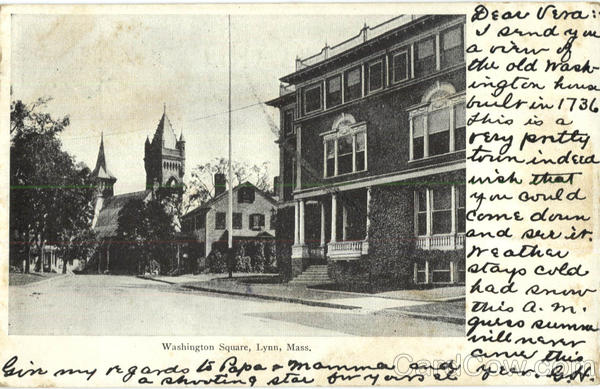 Dear Vera:-
I send you
a view of
the old Wash-
ington house
built in 1736
This is a
very pretty
town indeed
wish that
you could
come down
and see it.
Weather
stays cold
had snow
this A. M.
guess summer
will never
come this
year G.H.
Washington Square, Lynn, Mass.
Give my regards to Papa & Mamma and
a shooting star for yours I
CardCow.com